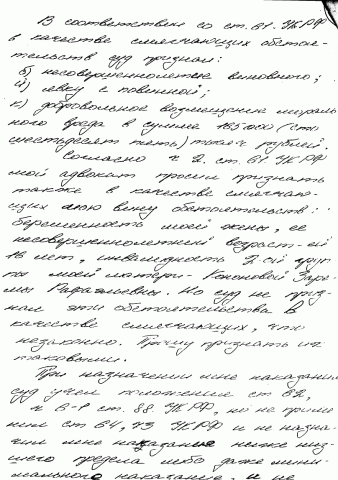 В соответствии со ст. 61 УК РФ
в качестве смягчающих обстоя-
тельств суд признал:
б) несовершеннолетие виновного;
и) явку с повинной;
к) добровольное возмещение мораль
ного вреда в сумме 165000 (сто
шестьдесят пять) тысяч рублей.
Согласно ч 2. ст. 61 УК РФ
мой адвокат просил признать
также в качестве смягчаю-
щих мою вину обстоятельств:
беременность моей жены, её
несовершеннолетний возраст -
16 лет, инвалидность 2-ой груп
пы моей матери -
Рафаэльевны. Но суд не приз-
нал эти обстоятельства в
качестве смягчающих, что
незаконно. Прошу признать их
таковыми.
При назначении мне наказания
суд учел положение ст 62,
ч 6-1 ст. 88 УК РФ, но не приме
нил ст 64, 73 УК РФ и не назна-
чил мне наказание ниже низ-
шего предела либо даже мини-
мального наказания, и не